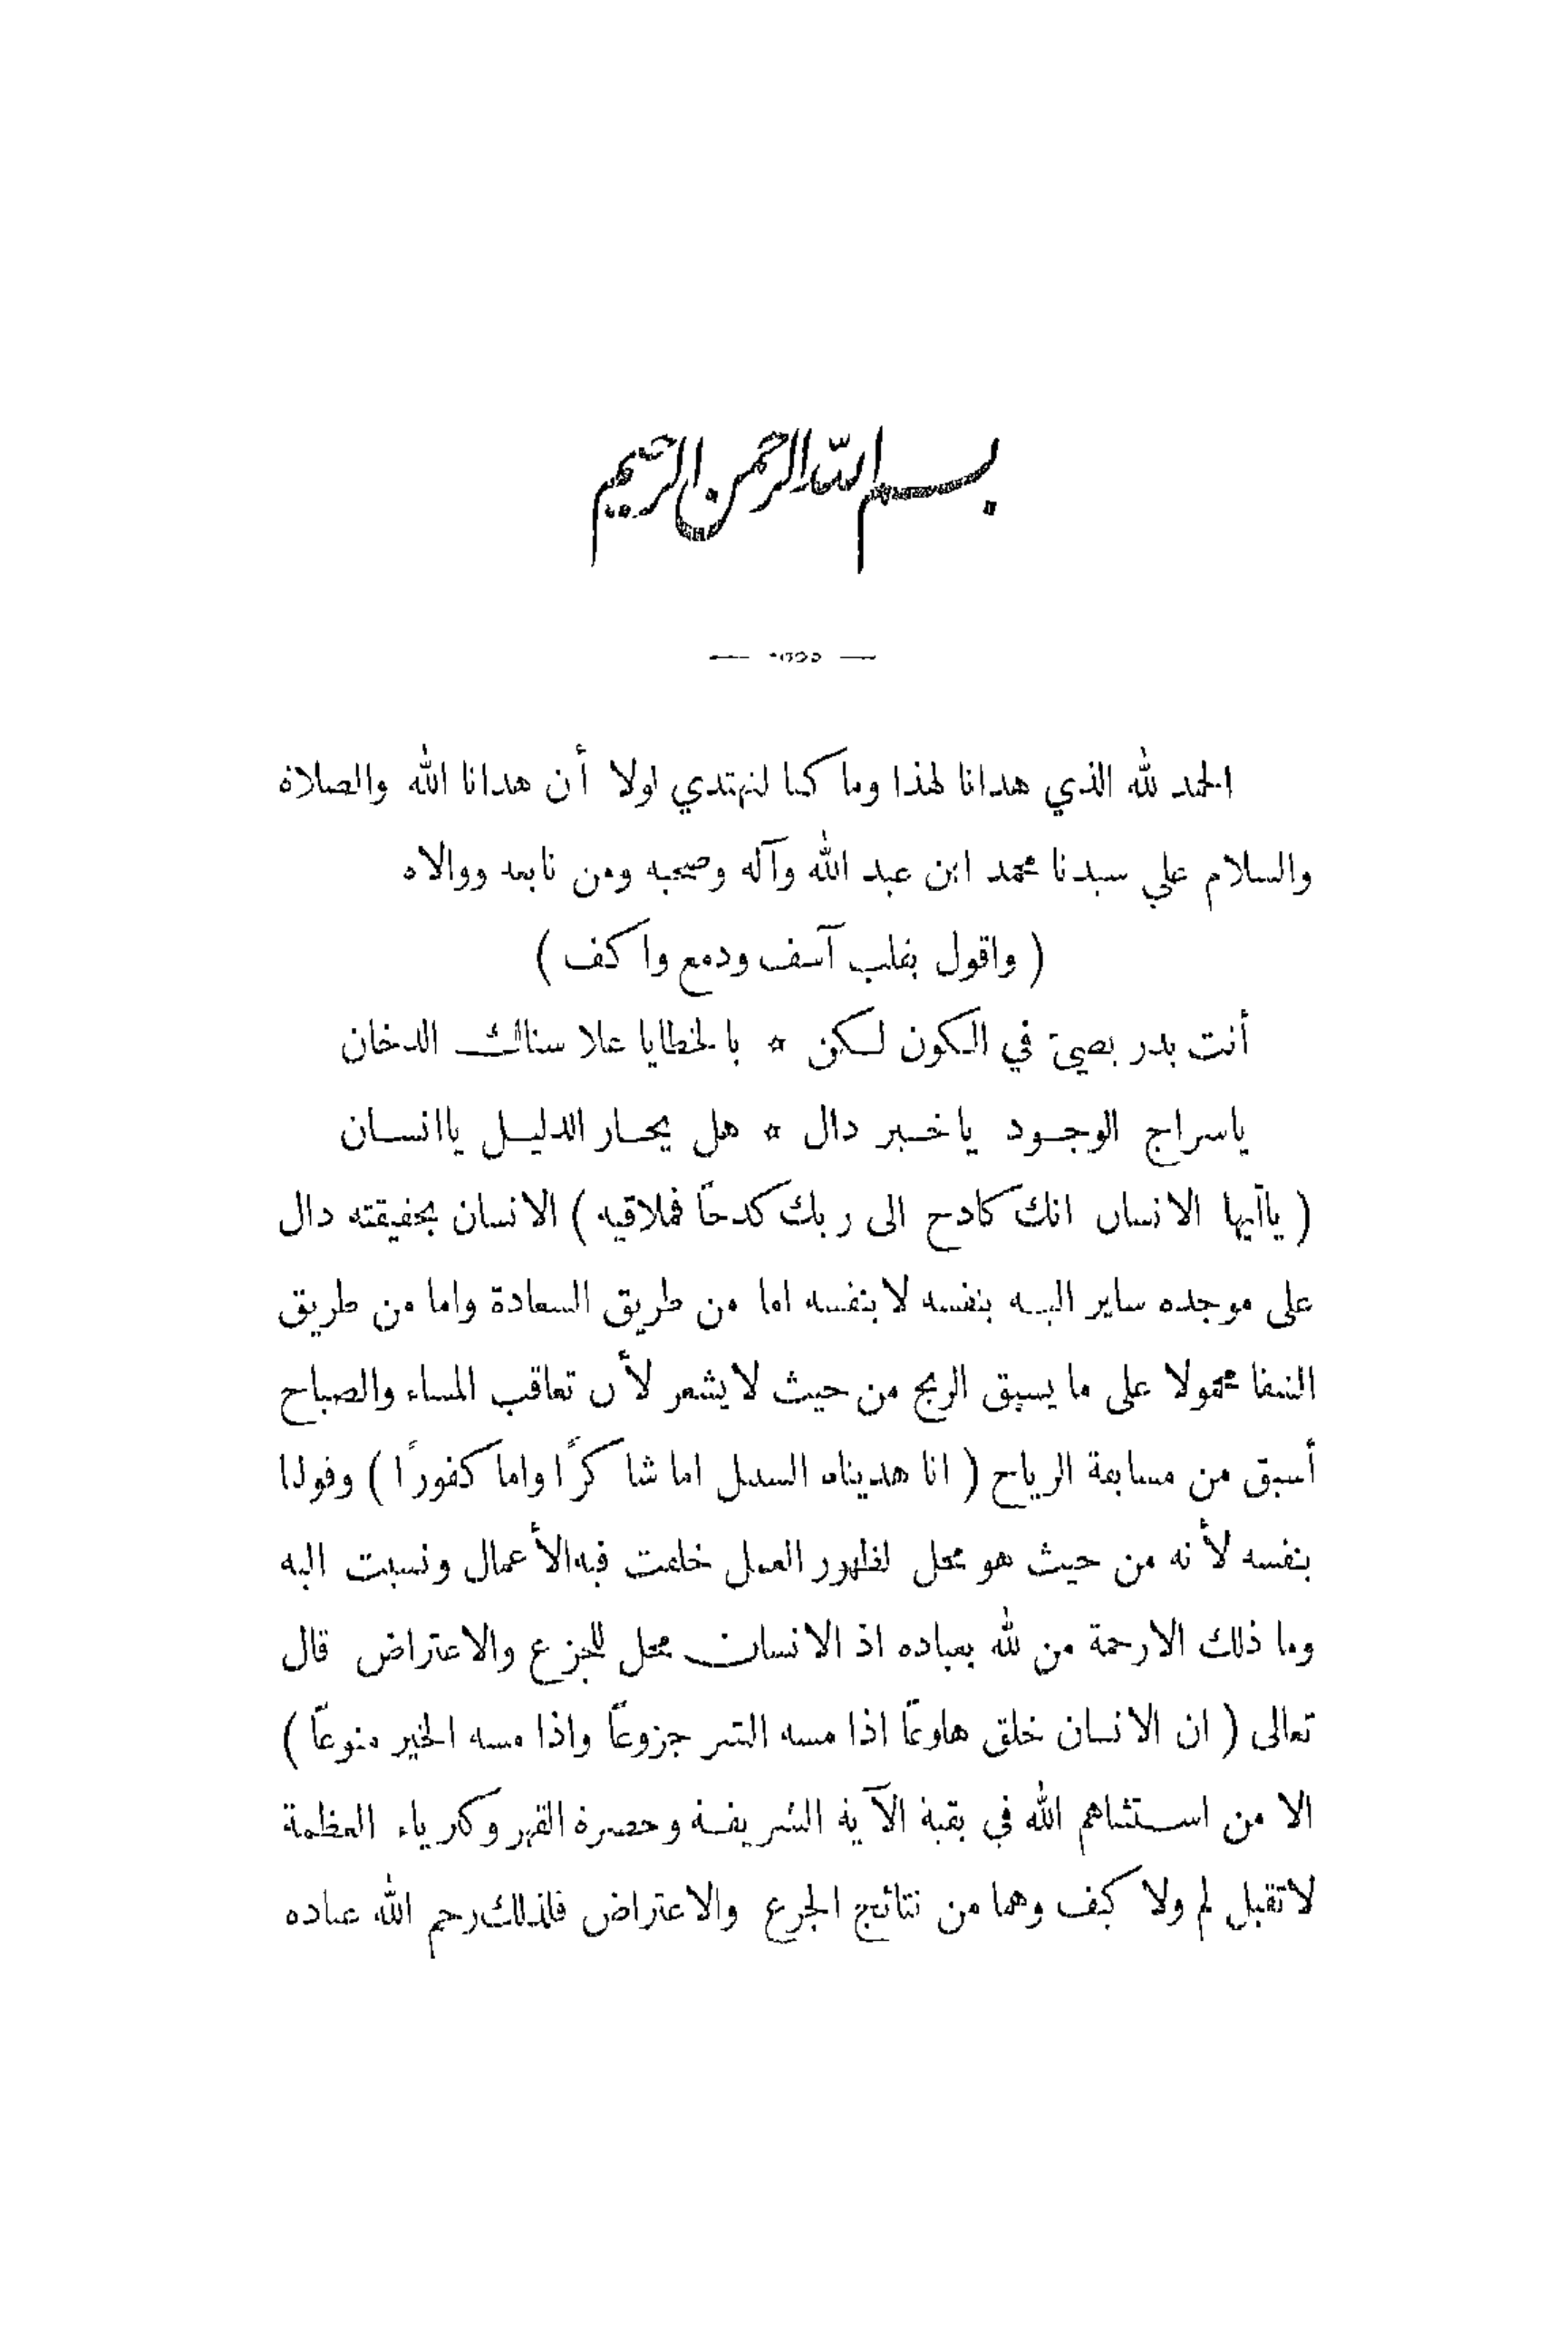 بسم الله الرحمن الرحيم
الحمد لله الذي هدانا لهذا وما كنا لنهتدي لولا أن هدانا الله والصلاة
والسلام علي سيدنا محمد ابن عبد الله وآله وصحبه ومن تابعه ووالاه
( واقول بقلب آسف ودمع واكف )
أنت بدر يضيئ في الكون لكن * بالخطايا علا سناك الدخان
ياسراج الوجود ياخبر دال * هل يحار الدليل ياانسان
( ياآيها الانسان انك كادح الى ربك كدحًا فملاقيه ) الانسان بحقيقته دال
على موجده ساير اليه بنفسه لابنفسه اما من طريق السعادة واما من طريق
الشقا محمولا على ما يسبق الريح من حيث لايشعر لأن تعاقب المساء والصباح
أسبق من مسابقة الرياح ( انا هديناه السبيل اما شاكرًا واما كفورًا ) وقولنا
بنفسه لأنه من حيث هو محل لظهور العمل خلقت فيه الأعمال ونسبت اليه
وما ذلك الارحمة من لله بعباده اذ الانسان محل للجزع والاعتراض قال
تعالى ( ان الانسان خلق هلوعًا اذا مسه الشر جزوعًا واذا مسه الخير منوعًا )
الا من استثناهم الله في بقية الآية الشريفة وحضرة القهر وكبرياء العظمة
لاتقبل لم ولا كيف وهما من نتائج الجزع والاعتراض فلذلك رحم الله عباده